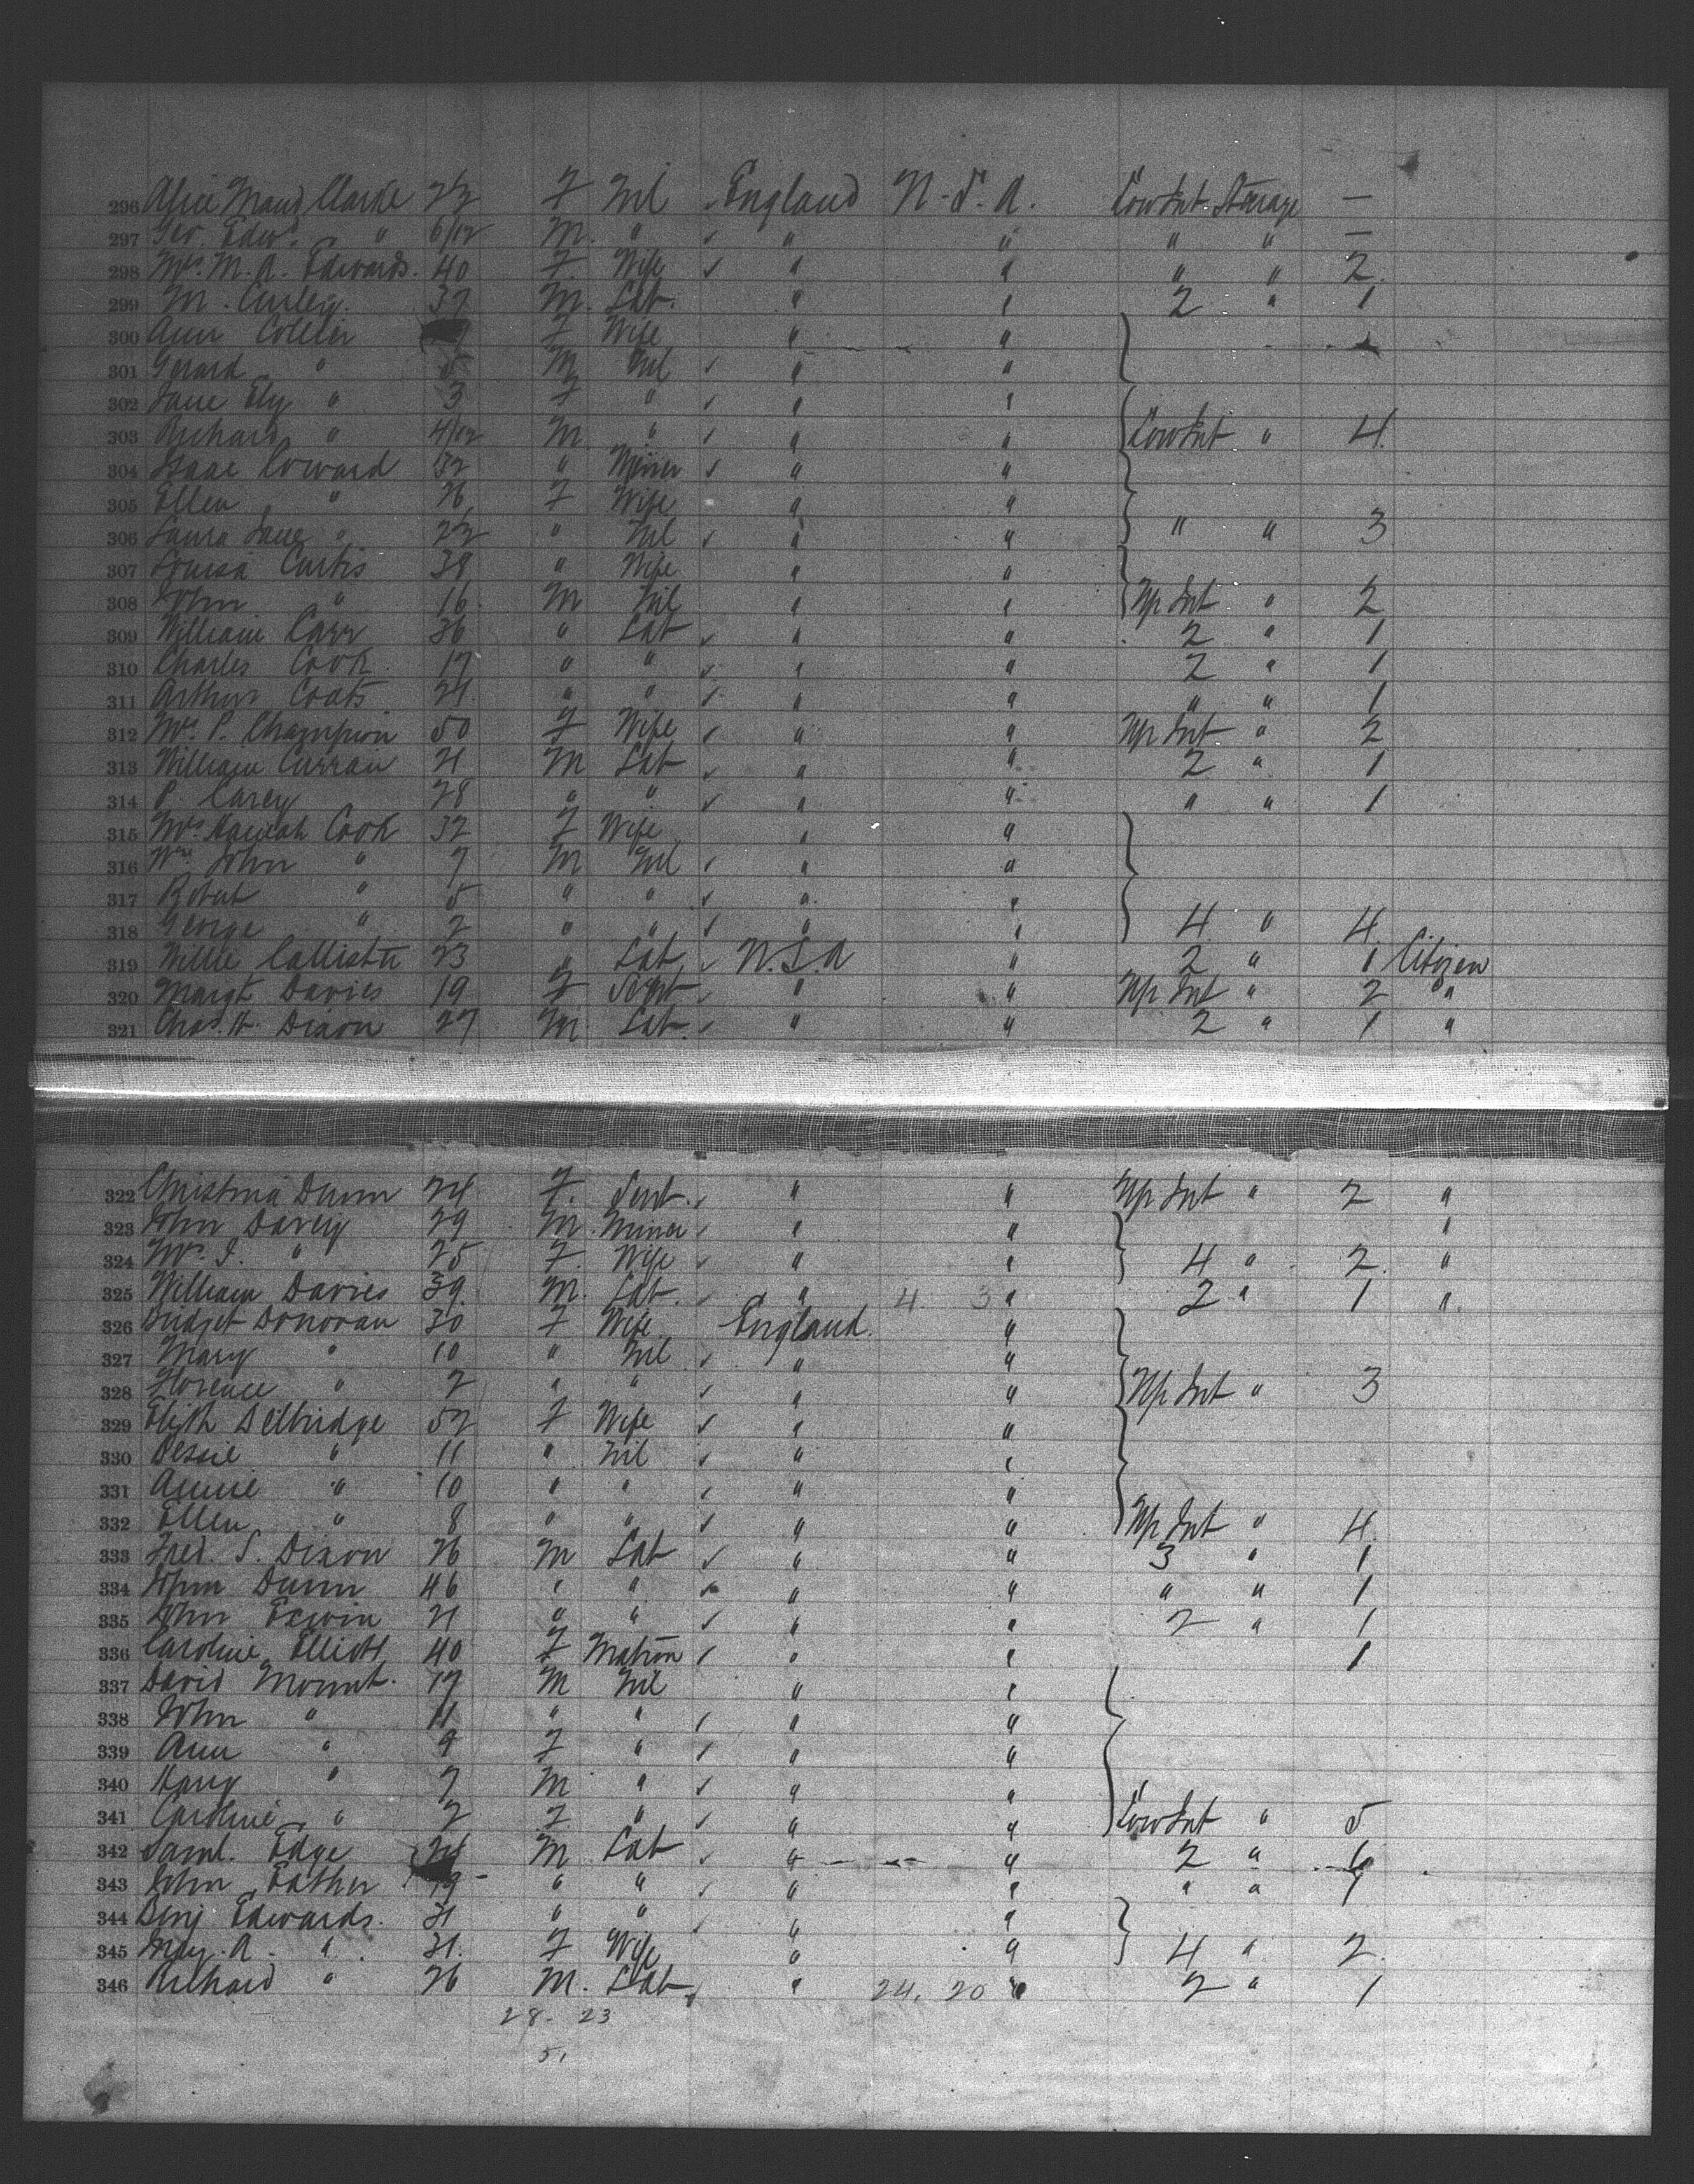 296 Alice Maud Clarke F Nil England U.S.A. Low Int Steerage —
297 Geo. Edwd. " 6/12 M. " " " " " —
298 Mrs. M. A. Edwards. 40 F. Wife " " " " 2.
299 M. Curley. 37 M. Lab. " " 2 " 1
300 Ann F Wife " "
301 Gerard " 5 M Nil " "
302 Jane Ely " 3 F " " "
303 Richard " 4/12 M " " " Low Int " 4.
304 Isaac Coward 32 " Miner " "
305 Ellen " 26 F Wife " "
306 Laura Jane " " Nil " " " " 3
307 Louisa Curtis 38 " Wife " "
308 John " 16. M Nil " " Up Int " 2
309 William Carr 36 " Lab " " 2 " 1
310 Charles Cook 17 " " " " 2 " 1
311 Arthur Coats 21. " " " " " " 1
312 Mrs. P. Champion 50 F Wife " " Up Int " 2
313 William Curran 21 M Lab " " 2 " 1
314 P. Carey 28 " " " " " " 1
315 Mrs. Cook 32 F Wife " "
316 Wm. John " 7 M Nil " "
317 Robert " 5 " " " "
318 George " 2 " " " " 4 " 4
319 Willie Callister 23 " Lab U.S.A " 2 " 1 Citizen
320 Margt Davies 19 F Servt " " Up Int " 2 "
321 Chas. H. Dixon 27 M. Lab. " " 2 " 1 "
322 Christina Dunn 24 F. Servt. " " Up Int " 2 "
323 John Davey 29 M. Miner " " "
324 Mrs. J. " 25 F. Wife " " 4 " 2. "
325 William Davies 39. M. Lab. " 4. 3 " 2 " 1 "
326 Bridget Donovan 30 F Wife England. "
327 Mary " 10 " Nil " "
328 Florence " 2 " " " " Up Int " 3
329 Elizth Delbridge 52 F Wife " "
330 Bessie " 11 " Nil " "
331 Annie " 10 " " " "
332 Ellen " 8 " " " " Up Int " 4.
333 Fred. S. Dixon 26 M Lab " " 3 " 1
334 John Dunn 46 " " " " " " 1
335 John Erwin 21 " " " " 2 " 1
336 Caroline Elliott 40 F Matron " " 1
337 David Mount. 17 M Nil " "
338 John " 11 " " " "
339 Ann " 9 F " " "
340 Harry " 7 M " " "
341 Caroline " 2 F " " " Low Int " 5
342 Saml. Edge 24 M Lab " " 2 "
343 John 19 " " " " " " 1
344 Benj Edwards. 31 " " " "
345 May. A. " 31. F Wife " " 4 " 2.
346 Richard " 26 M. Lab " 24. 20 " 2 " 1
28. 23
51